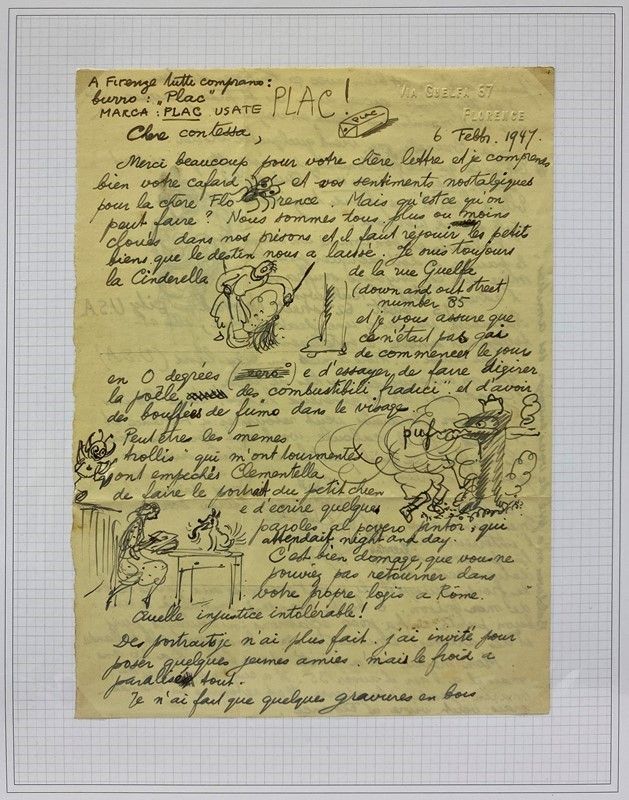 A Firenze tutti comprano:
burro: "Plac" PLAC!
MARCA: PLAC USATE
PLAC
VIA GUELFA 87
FLORENCE
6 Febbr. 1947.
Chere contessa,
Merci beaucoup pour votre chère lettre et je comprends
bien votre cafard et vos sentiments nostalgiques
pour la chere Flo rence. Mais qu'est ce qu'on
peut faire? Nous sommes tous plus ou moins
cloués dans nos prisons et il faut réjouir les petits
biens que le destin nous a laissé. Je suis toujours
la Cinderella de la rue Guelfa
(down and out street)
number 85
et je vous assure que
ce n'était pas gai
de commencer le jour
en 0 degrées (zero) e d'essayer de faire digérer
la poêle des "combustibili fradici" et d'avoir
des bouffées de fumo dans le visage.
puf
Peut êtres les mêmes
"trollis" qui m'ont tourmenté
ont empechés Clementella
de faire le portrait du petit chien
e d'écrire quelques
paroles al povero pintor, qui
attendait night and day.
C'est bien domage, que vous ne
pouviez pas retourner dans
votre propre logis a Rome.
Quelle injustice intolérable!
Des portraits je n'ai plus fait. j'ai invité pour
poser quelques jeunes amies. mais le froid a
paralisé tout.
Je n'ai fait que quelques gravures en bois